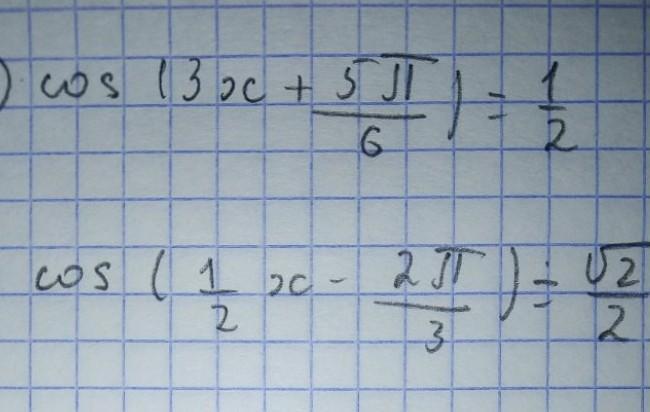 ) cos (3x + 5π/6) = 1/2
cos (1/2 x - 2π/3) = √2/2